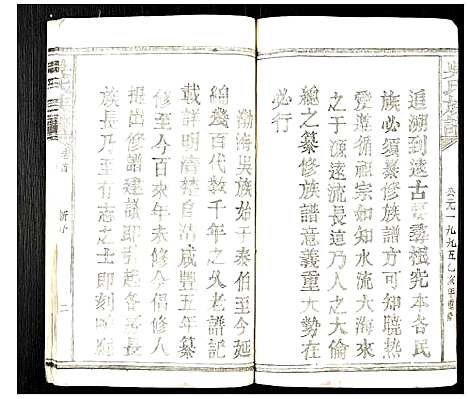 吳氏族譜
公元一九九五乙亥年重修
追溯到遠古要尋根究本各民
族必須纂修族譜方可知曉熱
愛遵循祖宗如水流大海來
之于源遠流長這乃人之大倫
總之纂修族譜意義重大勢在
必行
渤海吳族始于泰伯至今延
綿幾百代數千年之久老譜記
載詳明清朝自咸豐五年纂
修至今百來年未修今倡修人
提出修譜建議即引起各房長
族長乃至有志之士即刻響應
卷首
新序
二